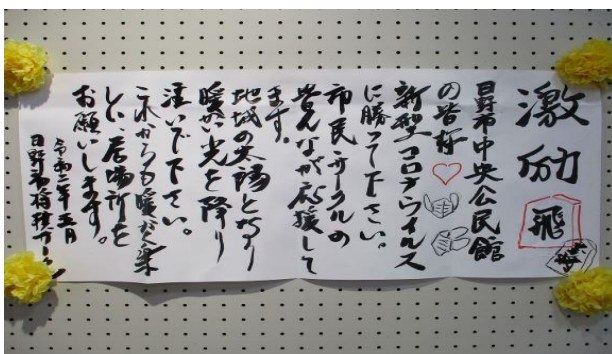 激励
飛
日野市中央公民館
の皆様
新型コロナウイルス
に勝って下さい。
市民サークルの
皆んなが応援して
ます。
地域の太陽となり
暖かい光を降り
注いで下さい。
これからも暖かく楽
しい、居場所を
お願いします。
令和二年五月
日野 将棋サークル